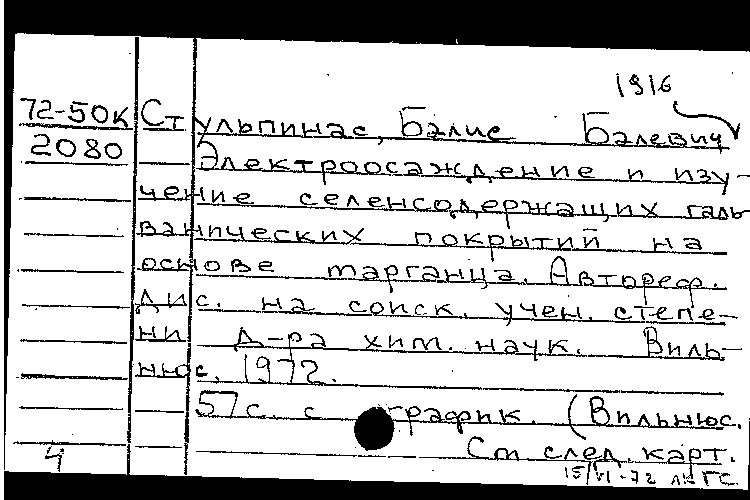 1916
72-50К Стульпинас, Балис Балевич
2080 Электроосаждение и изу-
чение селенсодержащих галь
ванических покрытий на
основе марганца. Автореф.
дис. на соиск. учен. степе-
ни д-ра хим. наук. Виль-
нюс, 1972.
57 с. с график. (Вильнюс.
См след. карт.
4 15/VI-72